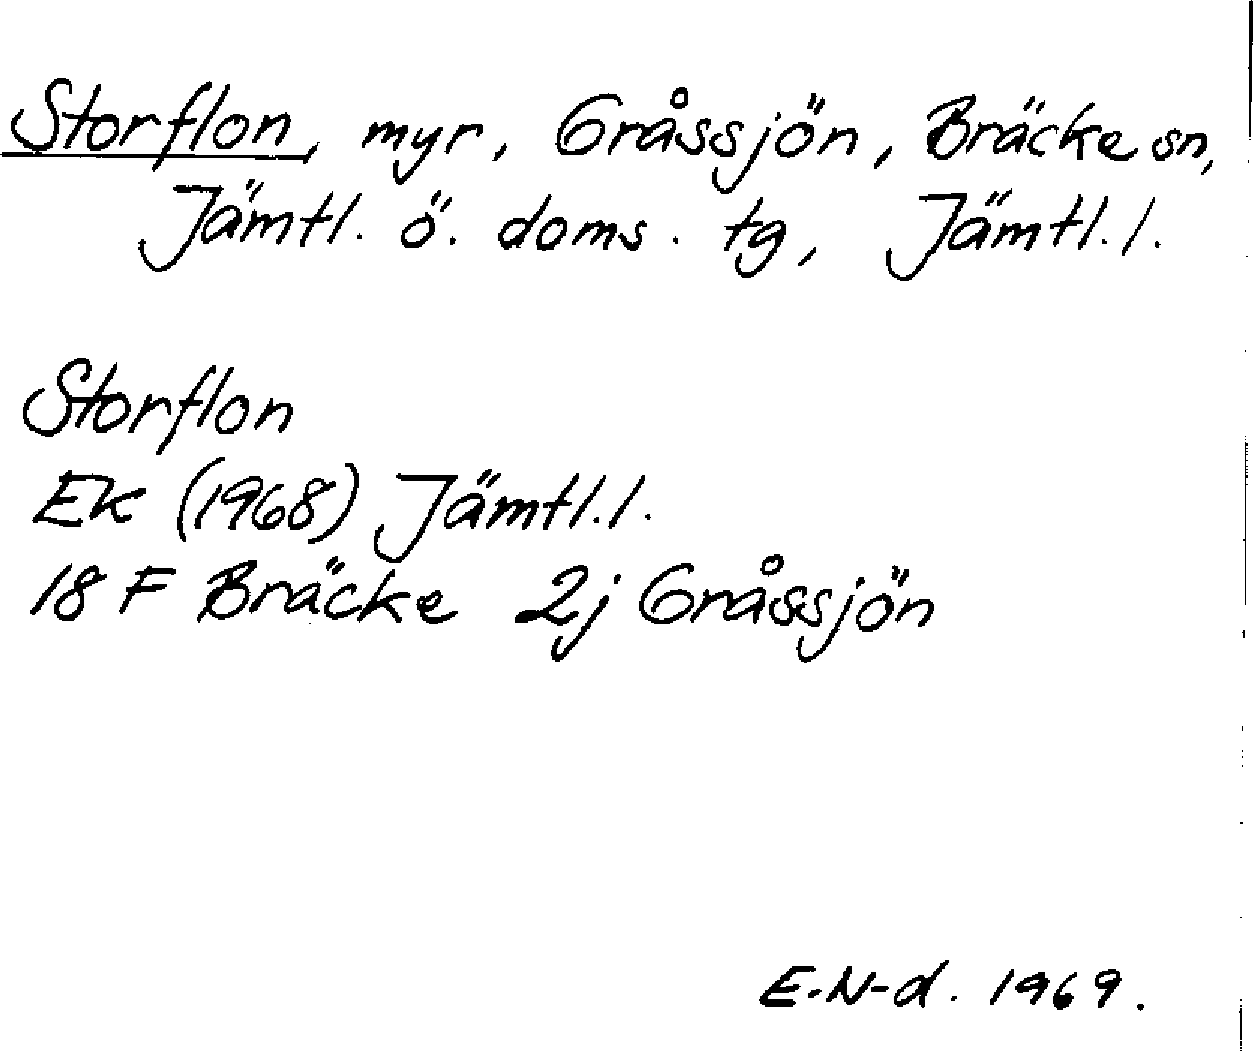 Storflon, myr, Gråssjön, Bräcke sn,
Jämtl. ö. doms. tg, Jämtl. l.
Storflon
Ek (1968) Jämtl. l.
18 F Bräcke 2j Gråssjön
E.N-d. 1969.